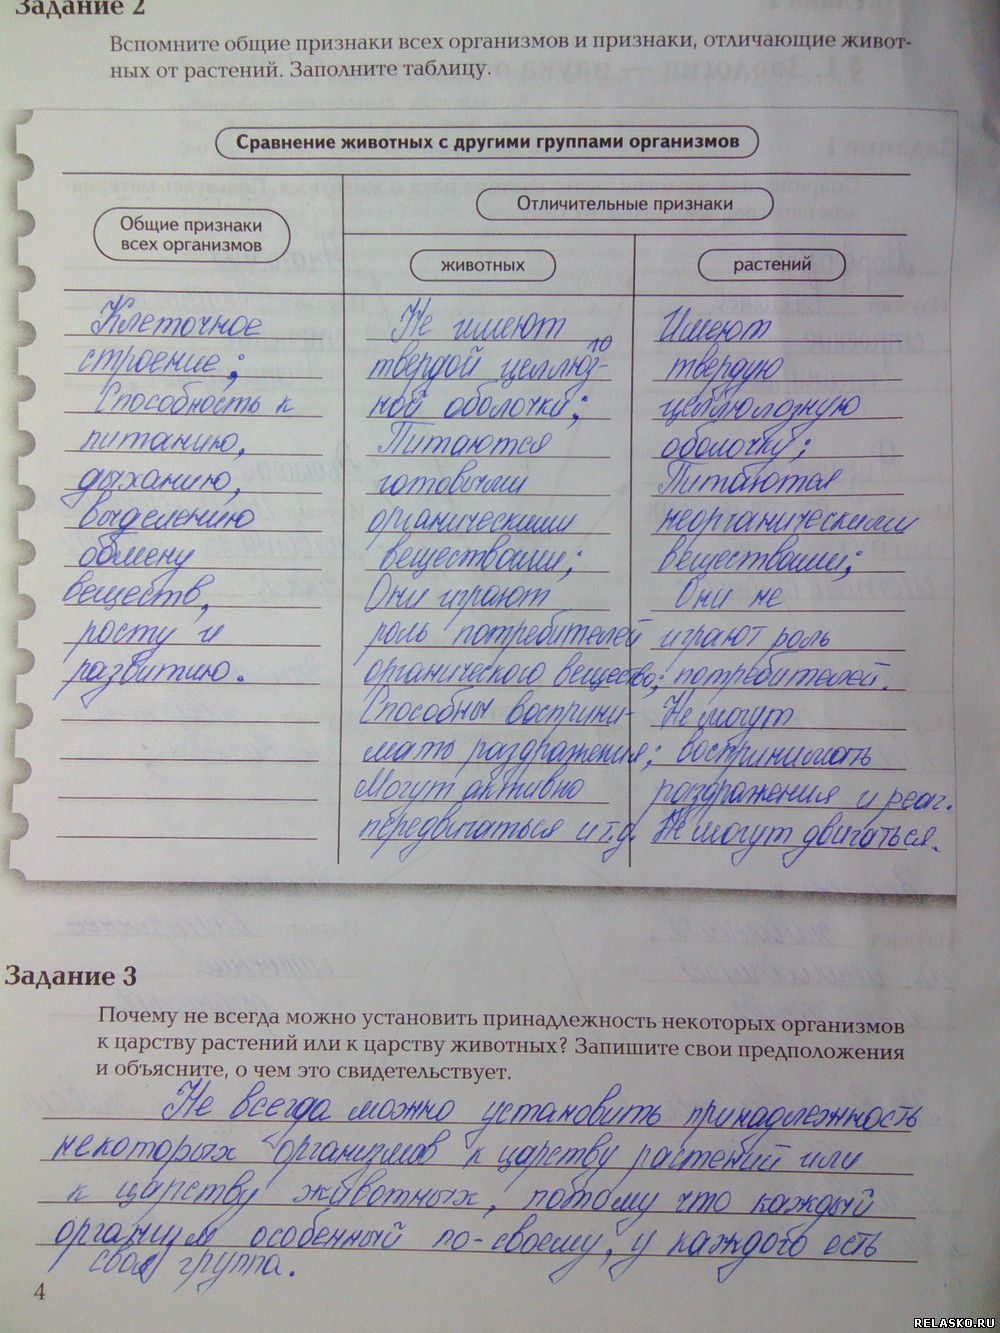 Задание 2
Вспомните общие признаки всех организмов и признаки, отличающие живот-
ных от растений. Заполните таблицу.
Сравнение животных с другими группами организмов
Общие признаки
всех организмов
Отличительные признаки
животных
растений
Клеточное
строение;
Способность к
питанию,
дыханию,
выделению
обмену
веществ,
росту и
развитию.
Не имеют
твердой целлюз-
ной оболочки;
Питаются
готовыми
органическими
веществами;
Они играют
роль потребителей
органического вещества;
Способны восприни-
мать раздражения;
Могут активно
передвигаться и т.д.
Имеют
твердую
целлюлозную
оболочку;
Питаются
неорганическими
веществами;
Они не
играют роль
потребителей.
Не могут
воспринимать
раздражения и реаг.
Не могут двигаться.
Задание 3
Почему не всегда можно установить принадлежность некоторых организмов
к царству растений или к царству животных? Запишите свои предположения
и объясните, о чем это свидетельствует.
Не всегда можно установить принадлежность
некоторых организмов к царству растений или
к царству животных, потому что каждый
организм особенный по-своему, у каждого есть
своя группа.
4
RELASKO.RU